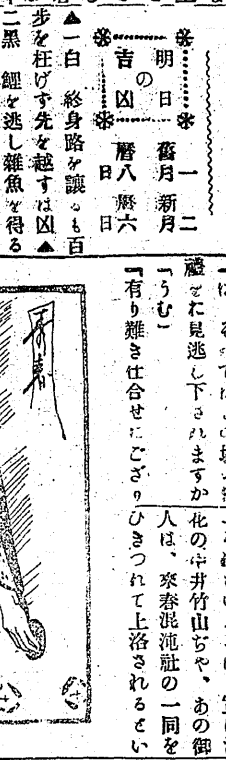 明日
の
吉凶
舊暦一月八日
新暦二月六日
▲一白 終身路を讓るも百
歩を枉げず先を越すは凶▲
二黒 鯉を逃し雜魚を得る
禮をお見逃し下されますか
「うむ」
「有り難き仕合せにござり
花の中井竹山ぢや、あの御
人は、來春混沌社の一同を
ひきつれて上洛されるとい